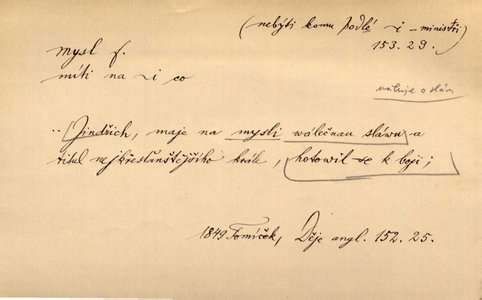 (nebýti komu podlé ~i – ministři
153. 29.)
mysl f.
míti na ~i co
usiluje o sláv
"Jindřich, maje na mysli wálečnau sláwu a
titul nejkřesťanštějšího krále, hotowil se k boji;
1849 Tomíček, Děje angl. 152. 25.